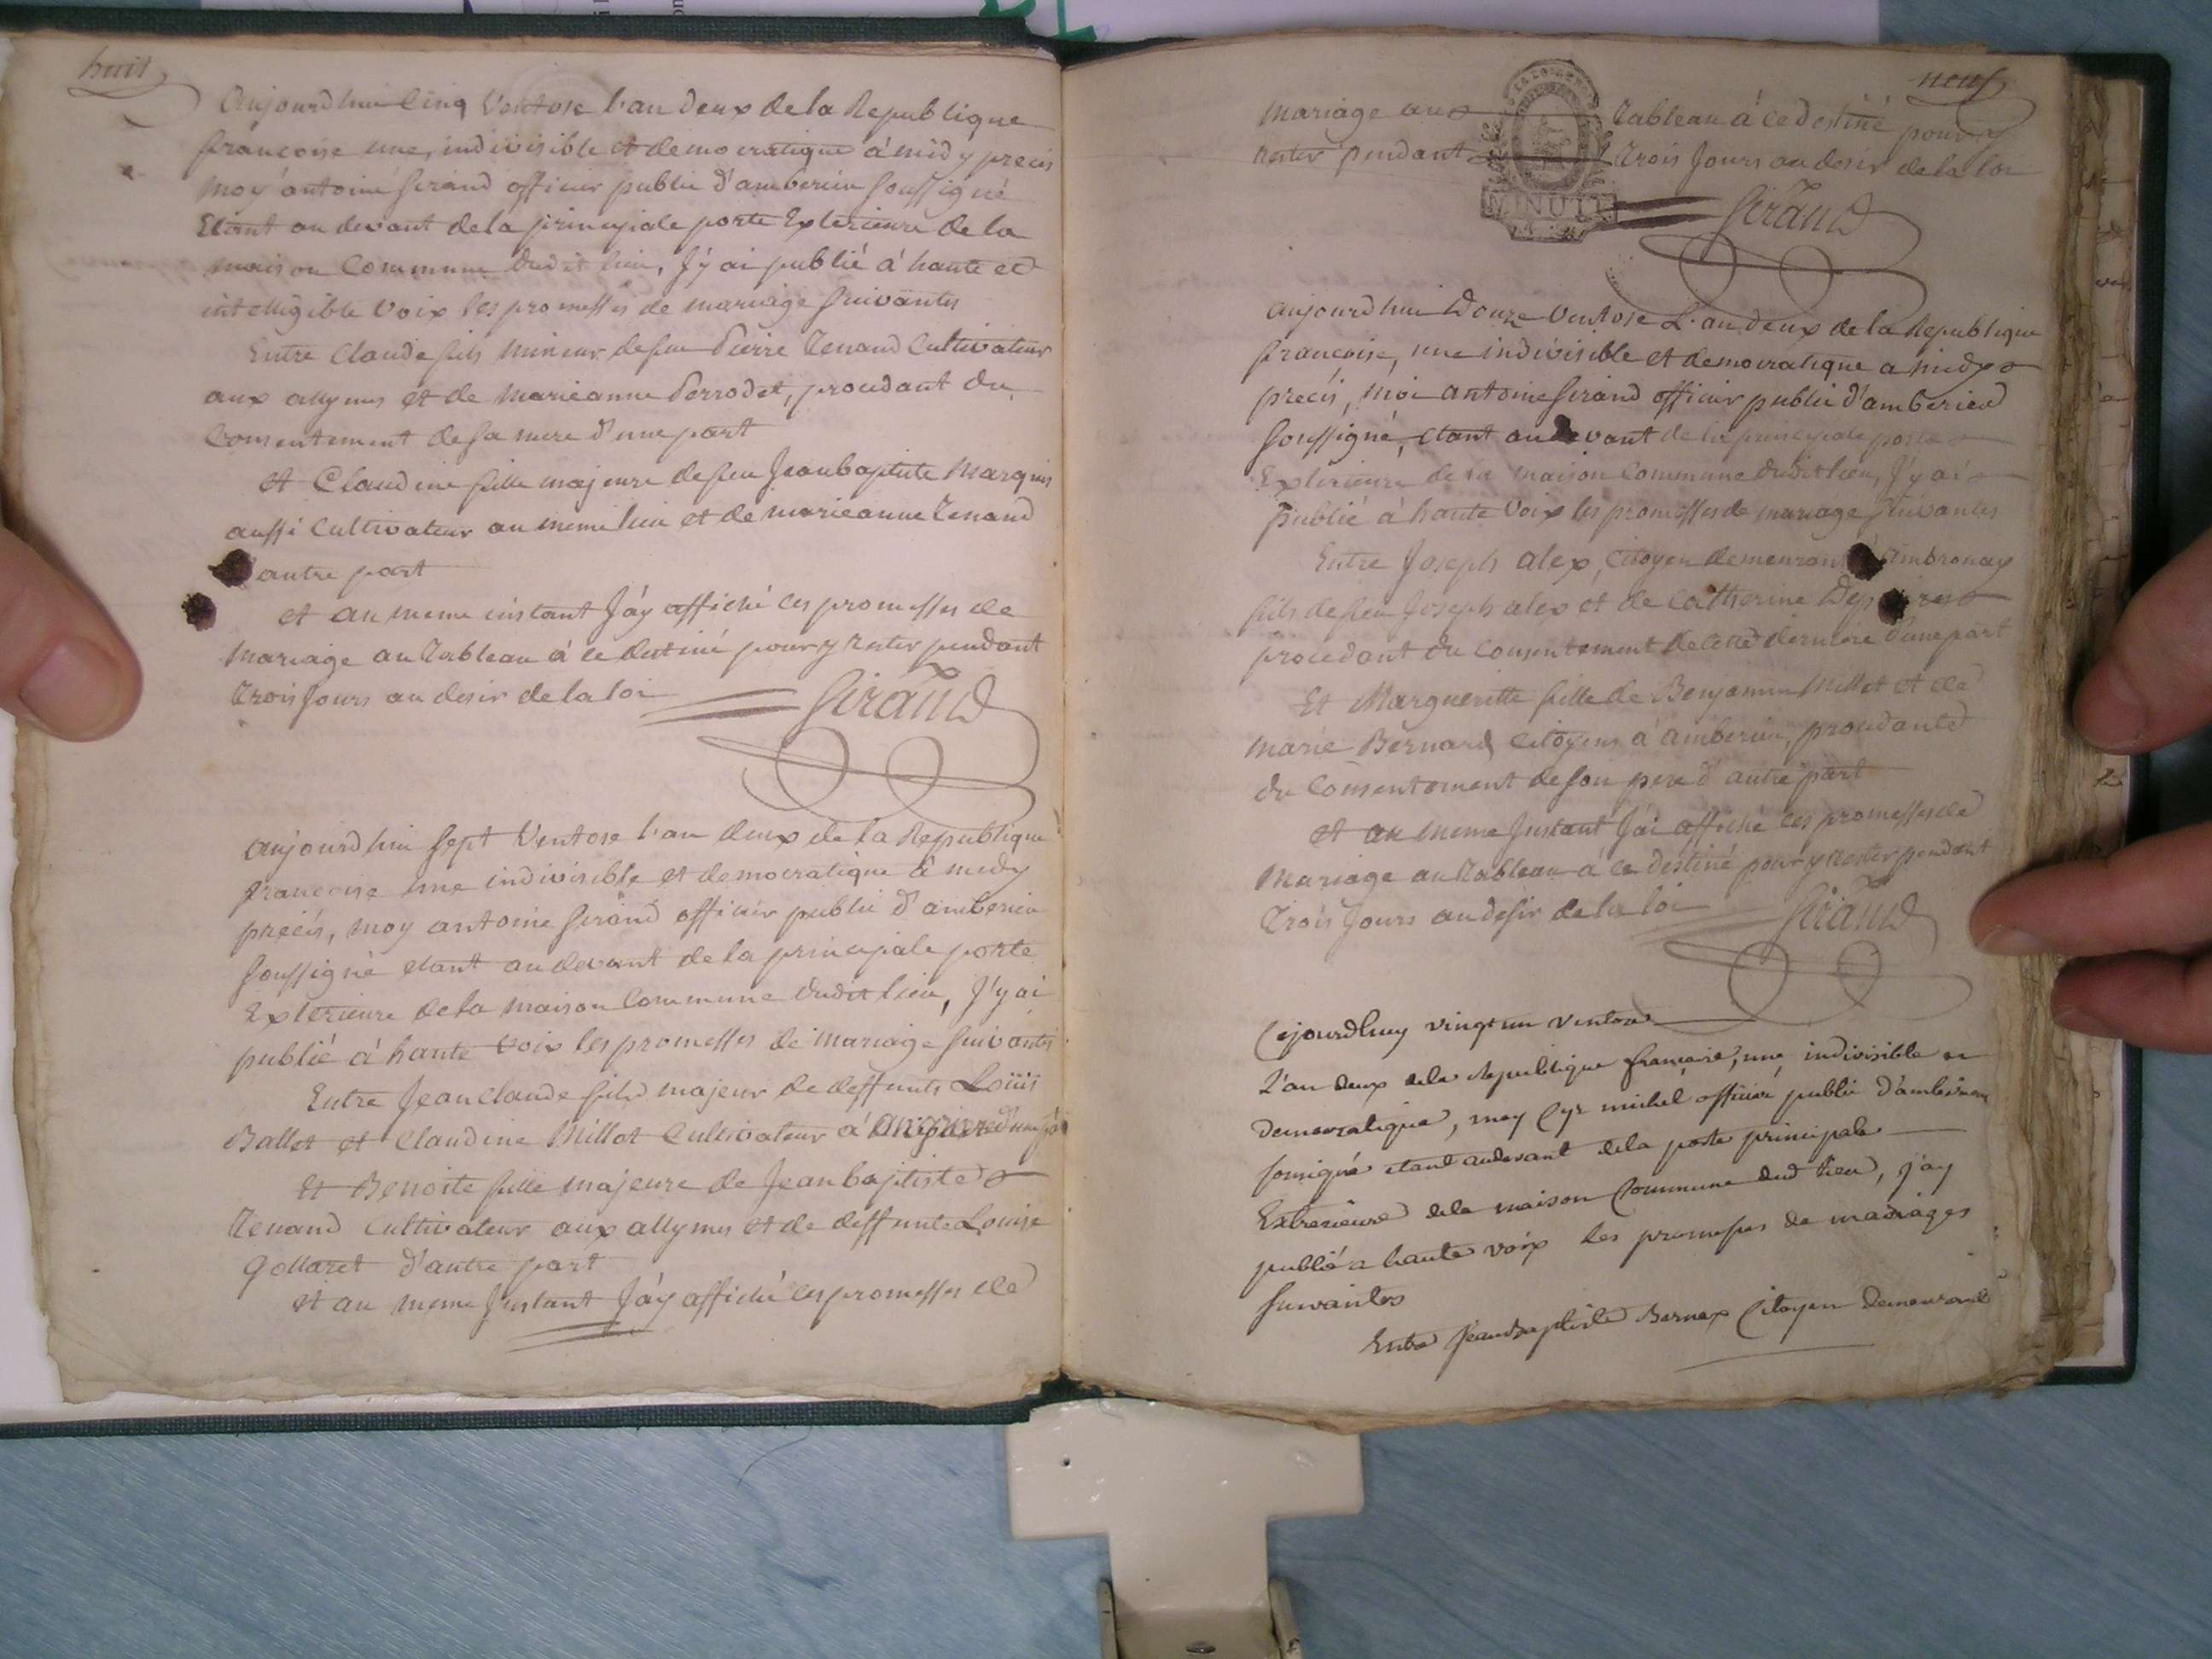 huit
Aujourdhui Cinq Ventose l'an deux de la Republique
françoise une, indivisible et democratique à midy precis
moy antoine Sirand officier public d'amberieu soussigné
Etant au devant de la principale porte Exterieure de la
maison Commune dudit lieu, J'y ai publié à haute et
intelligible voix les promesses de mariage suivantes
Entre Claude fils mineur de feu Pierre Tenand Cultivateur
aux allymes et de marieanne Perrodet, procedant du
Consentement de sa mere d'une part
et Claudine fille majeure de feu Jeanbaptiste Marquis
aussi Cultivateur au meme lieu et de marieanne Tenand
autre part
et au meme instant J'ay affiché ces promesses de
Mariage au Tableau à ce destiné pour y rester pendant
Trois Jours au desir de la loi
Sirand
Aujourdhui Sept Ventose l'an deux de la Republique
françoise une indivisible et democratique à midy
précis, moy antoine Sirand officier public d'amberieu
soussigné etant au devant de la principale porte
Exterieure de la maison Commune dudit lieu, J'y ai
publié à haute voix les promesses de mariage suivantes
Entre Jean Claude fils majeur de deffunts Loüis
Ballet et Claudine Millot Cultivateur à d'une
Et Benoite fille majeure de Jeanbaptiste
Tenand Cultivateur aux allymes et de deffunte Louise
d'autre part
et au meme Jnstant J'ay affiché ces promesses de
neuf
Mariage au Tableau à ce destiné pour y
rester pendant Trois Jours au desir de la loi
MINUIT
Sirand
Aujourdhui Douze Ventose L'an deux de la Republique
françoise, une indivisible et democratique a midy
précis, moi antoine Sirand officier public d'amberieu
soussigné, etant au devant de la principale porte
Exterieure de la maison Commune dudit lieu, J'y ai
publié à haute voix les promesses de mariage suivantes
Entre Joseph alex, Citoyen demeurant ambronay
fils de feu Joseph alex et de Catherine
procedant du Consentement de cette derniere d'une part
Et Margueritte fille de Benjamin Millet et de
marie Bernard Citoyens à amberieu, procedante
du Consentement de son pere d'autre part
et au meme Jnstant J'ai affiché ces promesses de
Mariage au Tableau à ce destiné pour y rester pendant
Trois Jours au desir de la loi
Sirand
Cejourdhuy vingt un ventose
L'an deux dela republique françoise, une, indivisible et
democratique, moy Cyr michel officier public d'amberieu
soussigné etant audevant dela porte principale
Exterieure dela maison Commune dud lieu, j'ay
publié a haute voix les promesses de mariages
suivantes
Entre Jeanbaptiste Bernex Citoyen demeurant